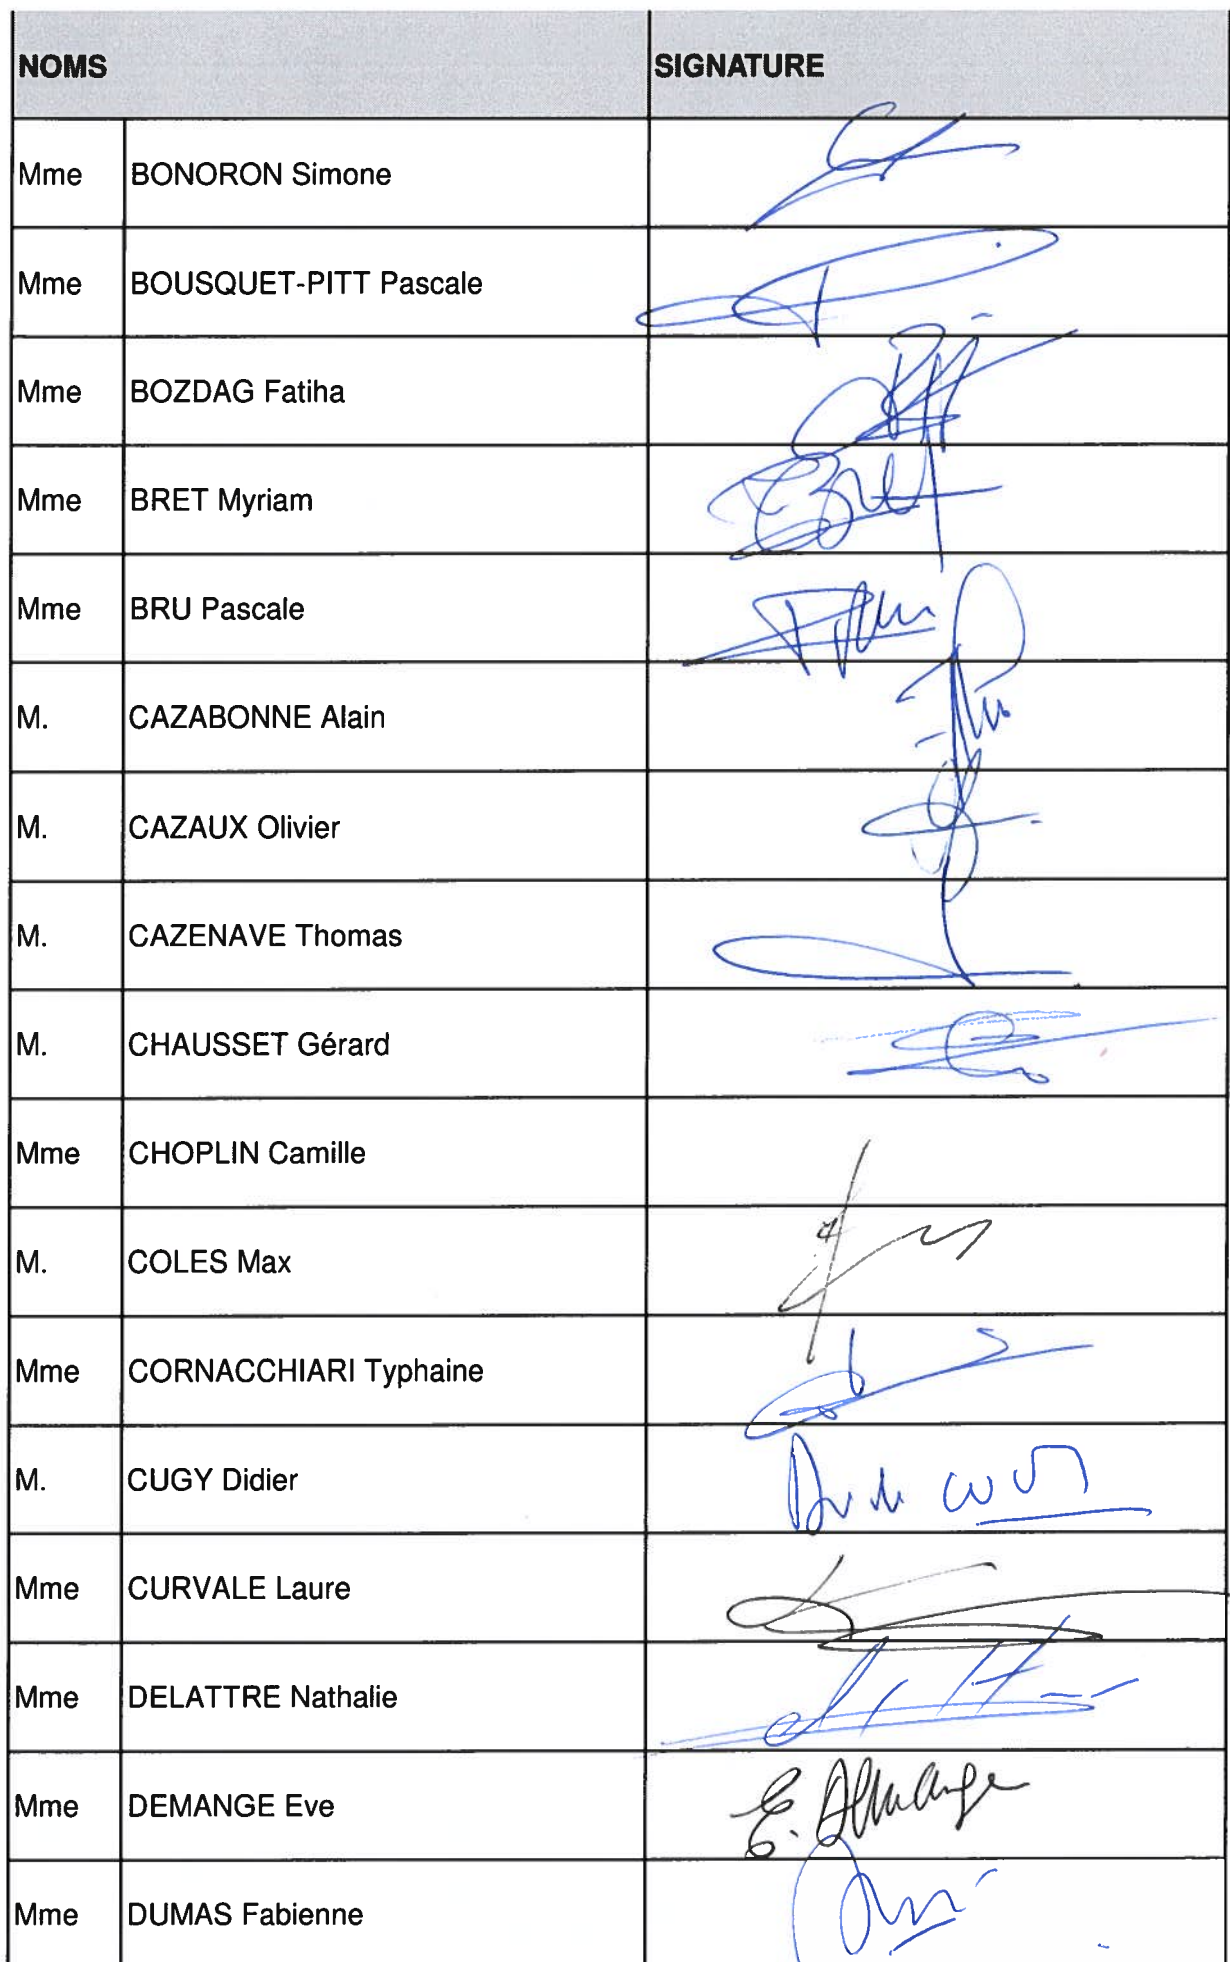 NOMS SIGNATURE
Mme BONORON Simone
Mme BOUSQUET-PITT Pascale
Mme BOZDAG Fatiha
Mme BRET Myriam
Mme BRU Pascale
M. CAZABONNE Alain
M. CAZAUX Olivier
M. CAZENAVE Thomas
M. CHAUSSET Gérard
Mme CHOPLIN Camille
M. COLES Max
Mme CORNACCHIARI Typhaine
M. CUGY Didier
Mme CURVALE Laure
Mme DELATTRE Nathalie
Mme DEMANGE Eve E. Demange
Mme DUMAS Fabienne